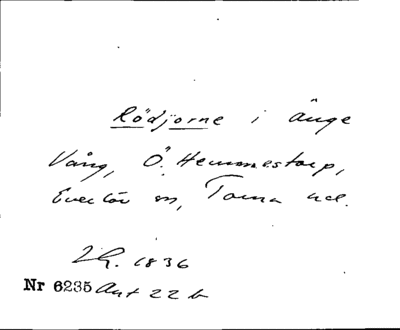 Rödjorne i änge
Vång, Ö. Hemmestorp,
Everlöv sn, Torna hd.
LR. 1836
Nr 6235 Akt 22 b